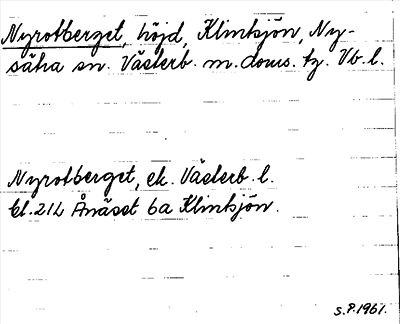 Nyrotberget, höjd, Klintsjön, Ny-
sätra sn. Västerb. m. doms. tg. Vb. l.
Nyrotberget, ek. Västerb. l.
bl. 21L Ånäset 6a Klintsjön.
S.P. 1961.